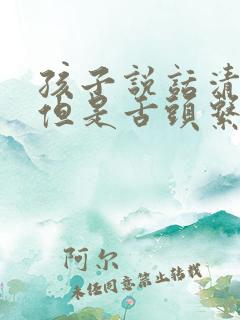 孩子説話清
但是舌頭繫
阿尔
未经同意禁止转载